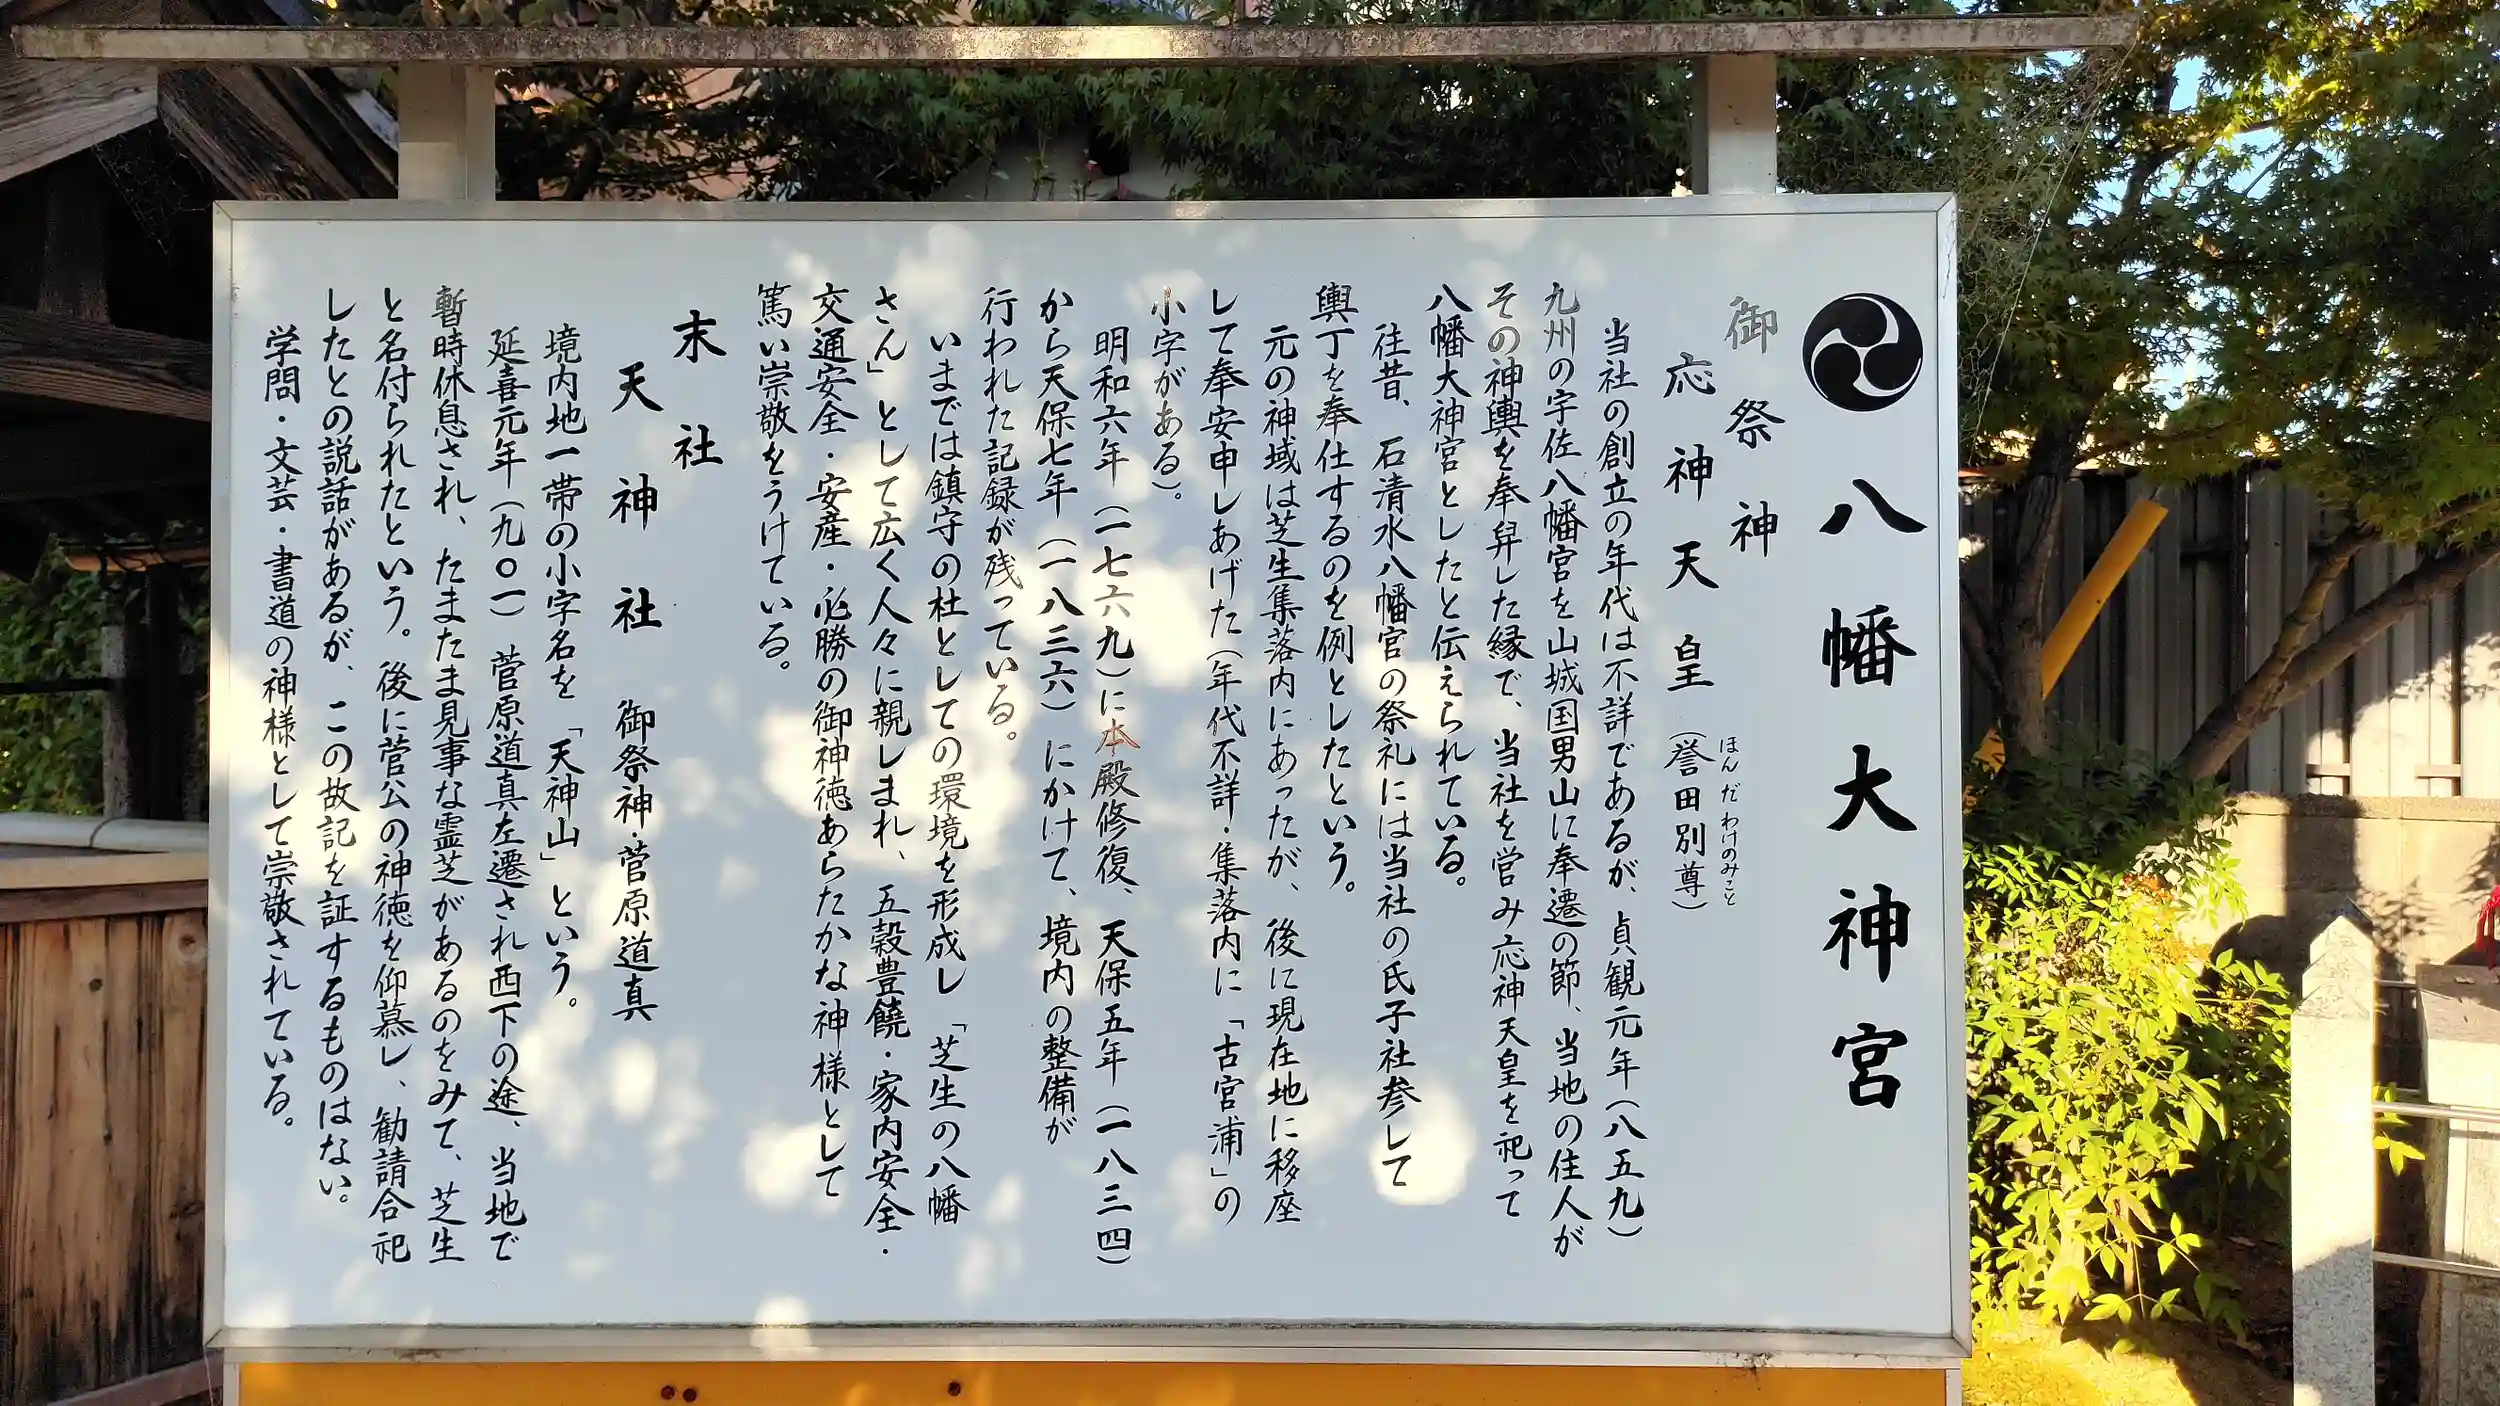 八幡大神宮
御祭神
応神天皇(誉田別尊)
ほんだわけのみこと
当社の創立の年代は不詳であるが、貞観元年(八五九)
九州の宇佐八幡宮を山城国男山に奉遷の節、当地の住人が
その神輿を奉舁した縁で、当社を営み応神天皇を祀って
八幡大神宮としたと伝えられている。
往昔、石清水八幡宮の祭礼には当社の氏子社参して
輿丁を奉仕するのを例としたという。
元の神域は芝生集落内にあったが、後に現在地に移座
して奉安申しあげた(年代不詳・集落内に「古宮浦」の
小字がある)。
明和六年(一七六九)に本殿修復、天保五年(一八三四)
から天保七年(一八三六)にかけて、境内の整備が
行われた記録が残っている。
いまでは鎮守の杜としての環境を形成し「芝生の八幡
さん」として広く人々に親しまれ、五穀豊饒・家内安全・
交通安全・安産・必勝の御神徳あらたかな神様として
篤い崇敬をうけている。
末社
天神社 御祭神・菅原道真
境内地一帯の小字名を「天神山」という。
延喜元年(九〇一)菅原道真左遷され西下の途、当地で
暫時休息され、たまたま見事な霊芝があるのをみて、芝生
と名付られたという。後に菅公の神徳を仰慕し、勧請合祀
したとの説話があるが、この故記を証するものはない。
学問・文芸・書道の神様として崇敬されている。